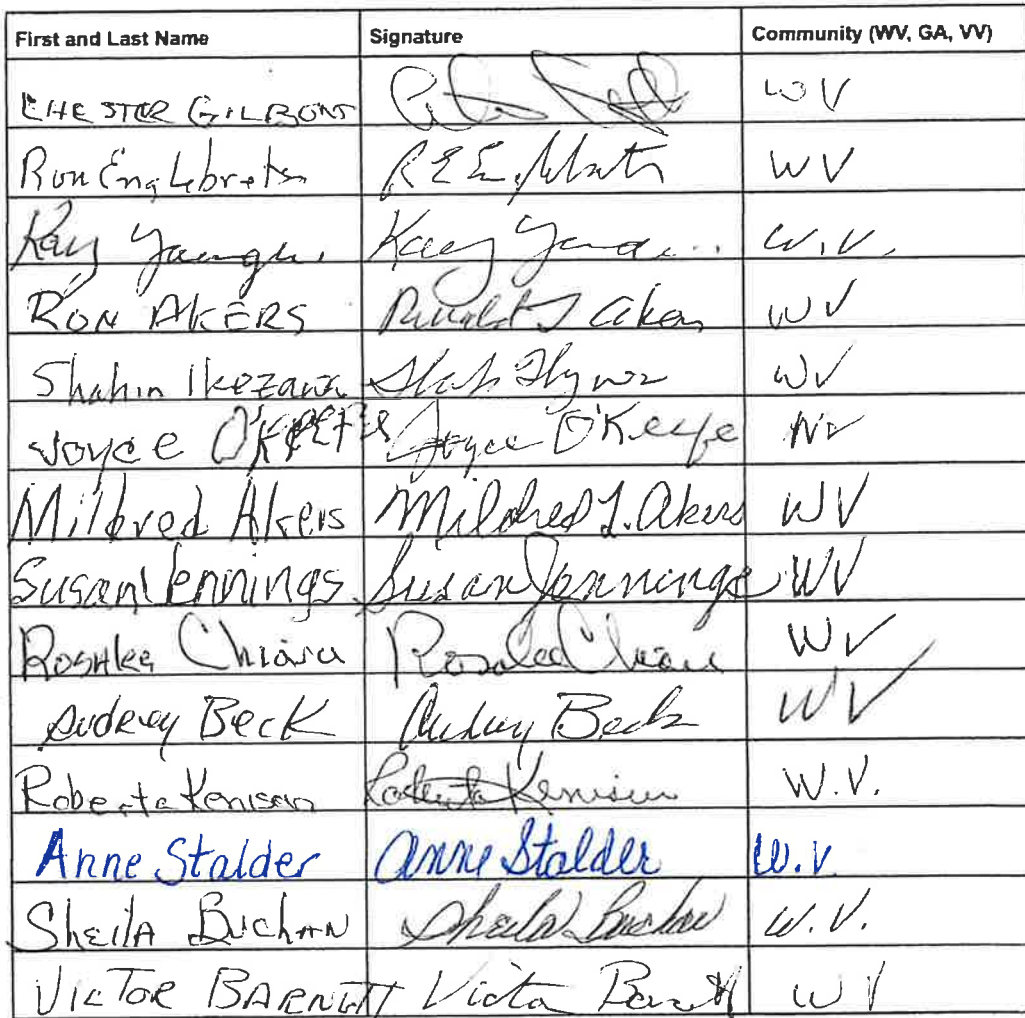 First and Last Name Signature Community (WV, GA, VV)
CHESTER WV
Ron WV
Kay W.V.
RON AKERS Akers WV
Shahin Ikezawa WV
Joyce O'KEEFE Joyce O'Keefe
Mildred Akers Mildred L. Akers WV
Susan Jennings Susan Jennings WV
Chiara Rosalee Chiara WV
Audrey Beck Audrey Beck WV
Roberta Kenison Roberta Kenison W.V.
Anne Stalder Anne Stalder W.V.
Sheila Buchan Sheila Buchan W.V.
VICTOR BARNETT Victor Barnett WV